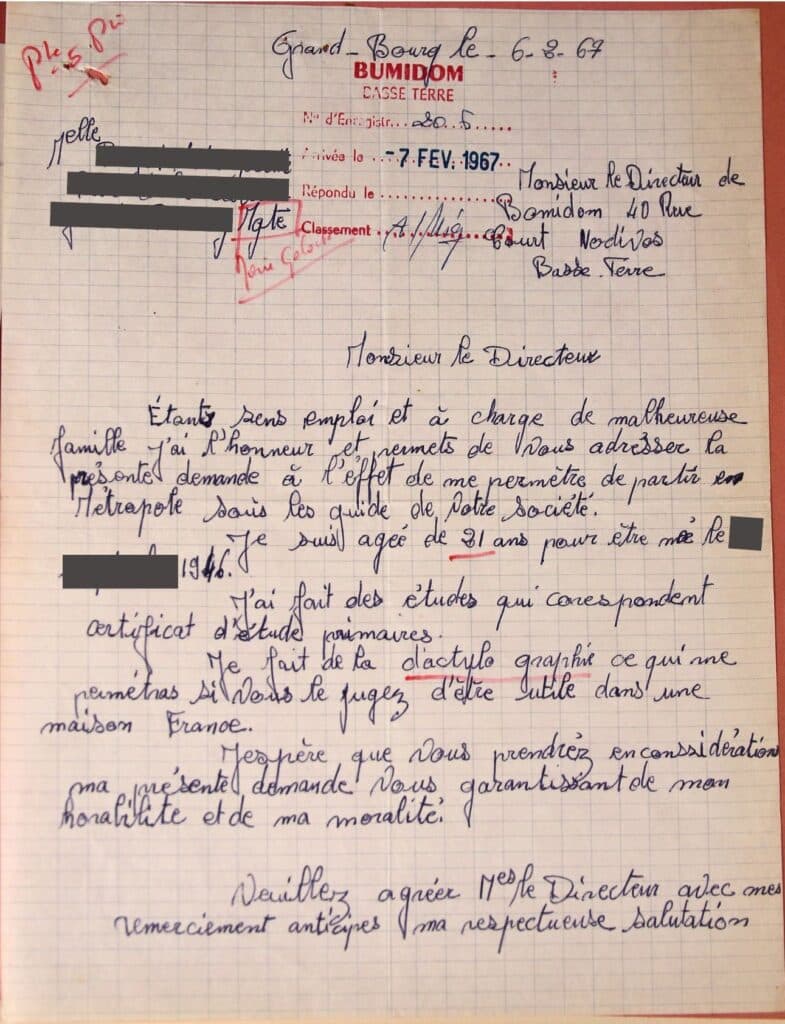 Grand-Bourg le - 6-2-67
BUMIDOM
BASSE TERRE
N° d'Enregistr...
Arrivée le -7 FEV. 1967
Répondu le
Classement
Melle
Mgte
Monsieur le Directeur de
Bomidom 40 Rue
Court Nodivos
Basse-Terre
Monsieur le Directeur
Étant sens emploi et à charge de malheureuse
famille j'ai l'honneur et permets de Vous adresser la
présente demande à l'effet de me permètre de partir en
Métropole sous les guide de Votre société.
Je suis ageé de 21 ans pour être née le
1946.
J'ai fait des études qui corespondent
certificat d'étude primaires.
Je fait de la d'actylo graphie ce qui me
permétras si Vous le jugez d'être utile dans une
maison France.
J'espère que Vous prendrèz enconssidération
ma présente demande Vous garantissant de mon
horabilité et de ma moralité.
Veuillez agréer Mes le Directeur avec mes
remerciement anticipes ma respectueuse salutation